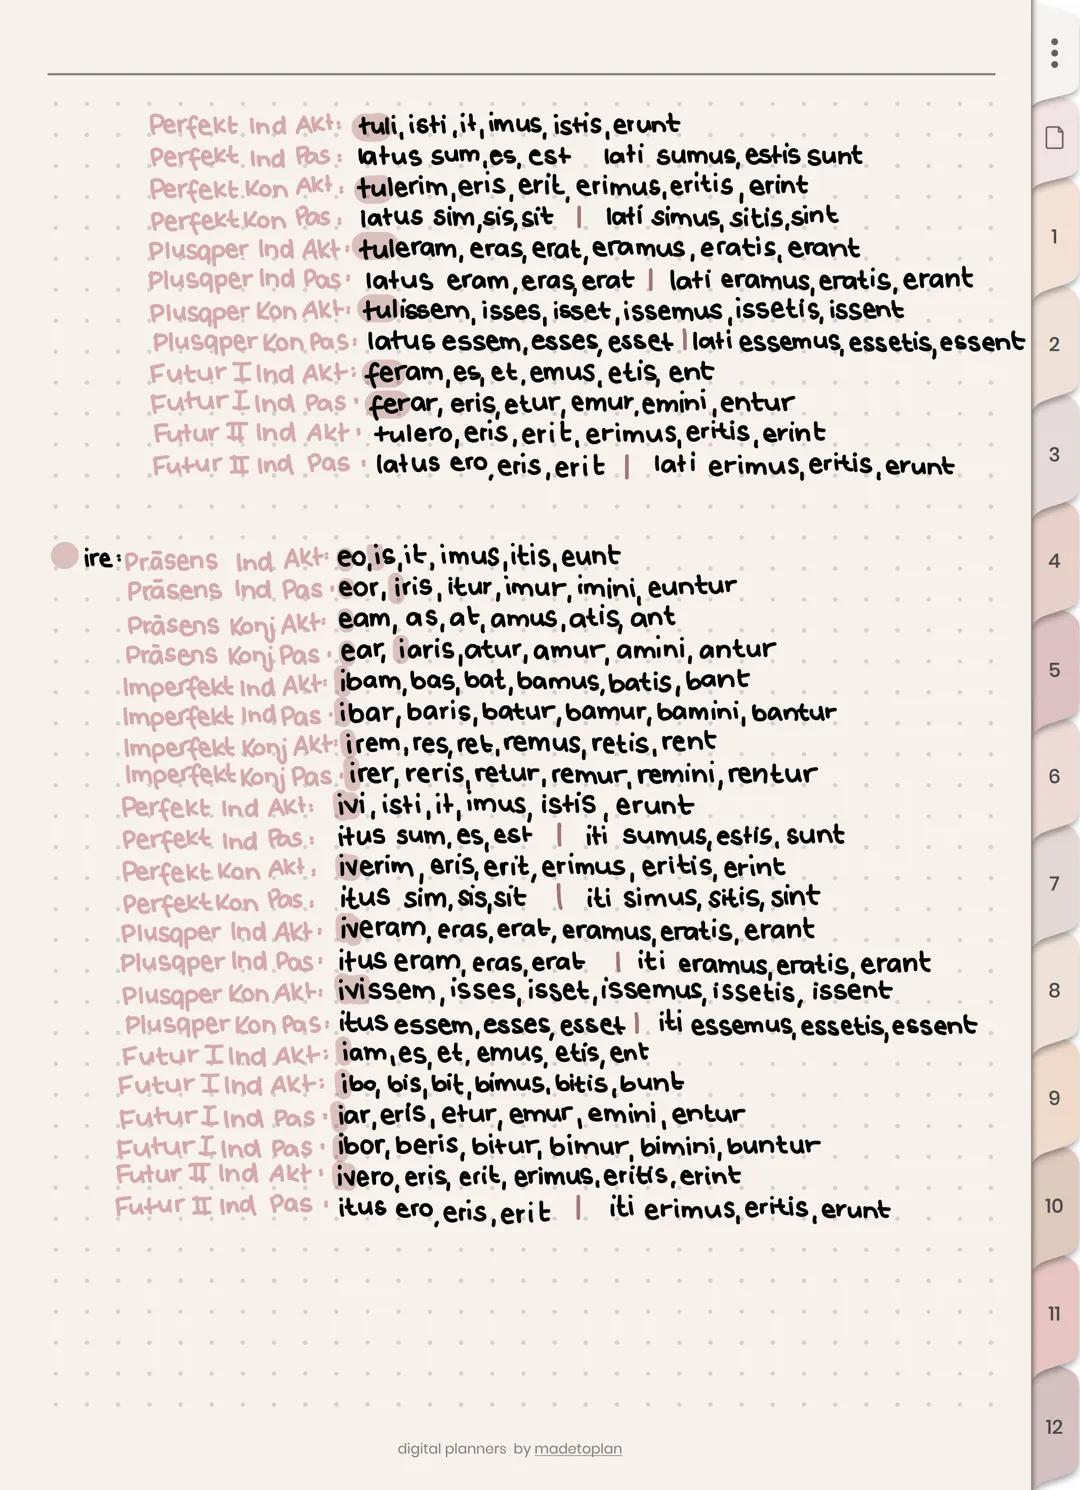 Perfekt Ind Akt: tuli, isti, it, imus, istis, erunt
Perfekt Ind Pas: latus sum, es, est lati sumus, estis sunt
Perfekt Kon Akt: tulerim, eris, erit, erimus, eritis, erint
Perfekt Kon Pas: latus sim, sis, sit | lati simus, sitis, sint
Plusqper Ind Akt: tuleram, eras, erat, eramus, eratis, erant
Plusqper Ind Pas: latus eram, eras, erat | lati eramus, eratis, erant
Plusqper Kon Akt: tulissem, isses, isset, issemus, issetis, issent
Plusqper Kon Pas: latus essem, esses, esset | lati essemus, essetis, essent
Futur I Ind Akt: feram, es, et, emus, etis, ent
Futur I Ind Pas: ferar, eris, etur, emur, emini, entur
Futur II Ind Akt: tulero, eris, erit, erimus, eritis, erint
Futur II Ind Pas: latus ero, eris, erit | lati erimus, eritis, erunt
ire: Präsens Ind Akt: eo, is, it, imus, itis, eunt
Präsens Ind Pas: eor, iris, itur, imur, imini, euntur
Präsens Konj Akt: eam, as, at, amus, atis, ant
Präsens Konj Pas: ear, iaris, atur, amur, amini, antur
Imperfekt Ind Akt: ibam, bas, bat, bamus, batis, bant
Imperfekt Ind Pas: ibar, baris, batur, bamur, bamini, bantur
Imperfekt Konj Akt: irem, res, ret, remus, retis, rent
Imperfekt Konj Pas: irer, reris, retur, remur, remini, rentur
Perfekt Ind Akt: ivi, isti, it, imus, istis, erunt
Perfekt Ind Pas: itus sum, es, est | iti sumus, estis, sunt
Perfekt Kon Akt: iverim, eris, erit, erimus, eritis, erint
Perfekt Kon Pas: itus sim, sis, sit | iti simus, sitis, sint
Plusqper Ind Akt: iveram, eras, erat, eramus, eratis, erant
Plusqper Ind Pas: itus eram, eras, erat | iti eramus, eratis, erant
Plusqper Kon Akt: ivissem, isses, isset, issemus, issetis, issent
Plusqper Kon Pas: itus essem, esses, esset | iti essemus, essetis, essent
Futur I Ind Akt: iam, es, et, emus, etis, ent
Futur I Ind Akt: ibo, bis, bit, bimus, bitis, bunt
Futur I Ind Pas: iar, eris, etur, emur, emini, entur
Futur I Ind Pas: ibor, beris, bitur, bimur, bimini, buntur
Futur II Ind Akt: ivero, eris, erit, erimus, eritis, erint
Futur II Ind Pas: itus ero, eris, erit | iti erimus, eritis, erunt
digital planners by madetoplan
1
2
3
4
5
6
7
8
9
10
11
12